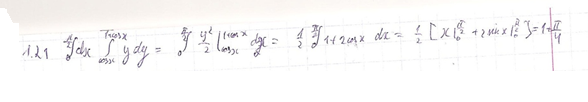 1.21 ∫₀^{π/2} dx ∫_{cosx}^{1+cosx} y dy = ∫₀^{π/2} y²/2 |_{cosx}^{1+cosx} dx = 1/2 ∫₀^{π/2} 1+2cosx dx = 1/2 [x|₀^{π/2} + 2sinx|₀^{π/2}] = 1+π/4